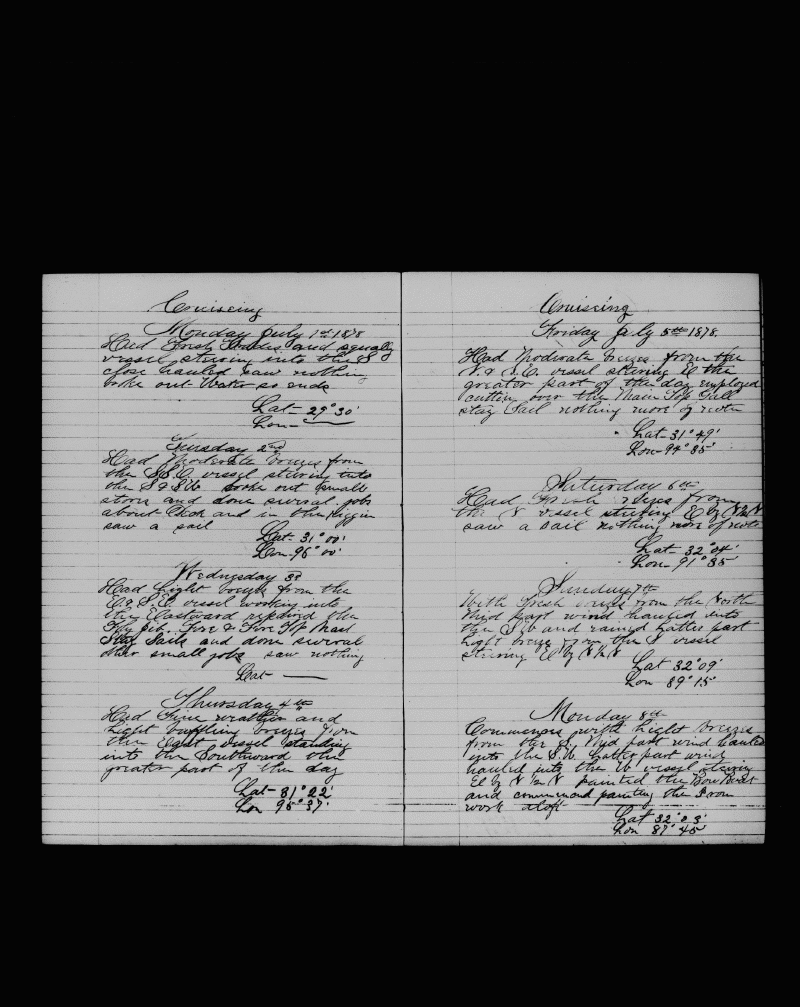 Cruiseing
Monday July 1st 1878
Had Fresh and squaly
vessel steering into the S
close hauled saw nothing
broke out Water so ends
Lat - 29° 30'
Lon -
Tuesday 2nd
Had Moderate breezes from
the S.S.E. vessel steering into
the broke out small
stors and done sieveral jobs
about Deck and in the Riggin
saw a sail
Lat - 31° 00'
Lon - 96° 00'
Wednesday 3d
Had Light breezes from the
E. & S.E. vessel working into
the Eastward repaired the
Fly jib. Fore & Fore T.P. Mast
Stay Sails and done sieveral
other small jobs saw nothing
Lat -
Thursday 4th
Had Fine weather and
Light baffling breezes from
the East vessel standing
into the Southward the
greater part of the day
Lat - 31° 22'
Lon 95° 37'
Cruiseing
Friday July 5th 1878.
Had Moderate breezes from the
N. & S.E. vessel steering E the
greater part of the day employed
cutting over the Main Top Gall
stay Sail nothing more of note
Lat - 31° 49'
Lon - 94° 35'
Saturday 6th
Had Fresh breezes from
the N vessel steering E by N½N
saw a sail nothing more of note
Lat - 32° 04'
Lon - 91° 35'
Sunday 7th
With fresh breezes from the North
Mid part wind hauled into
the S.W and rained Latter part
Light breezes from the S vessel
steering E by N½N
Lat 32° 09'
Lon 89° 15'
Monday 8th
Commences with Light breezes
from the S. Mid part wind hauled
into the S.W. Latter part wind
hauled into the W vessel steering
E by N½N painted the Bow Boat
and commenced painting the Iron
work aloft
Lat 32° 03'
Lon 87° 45'